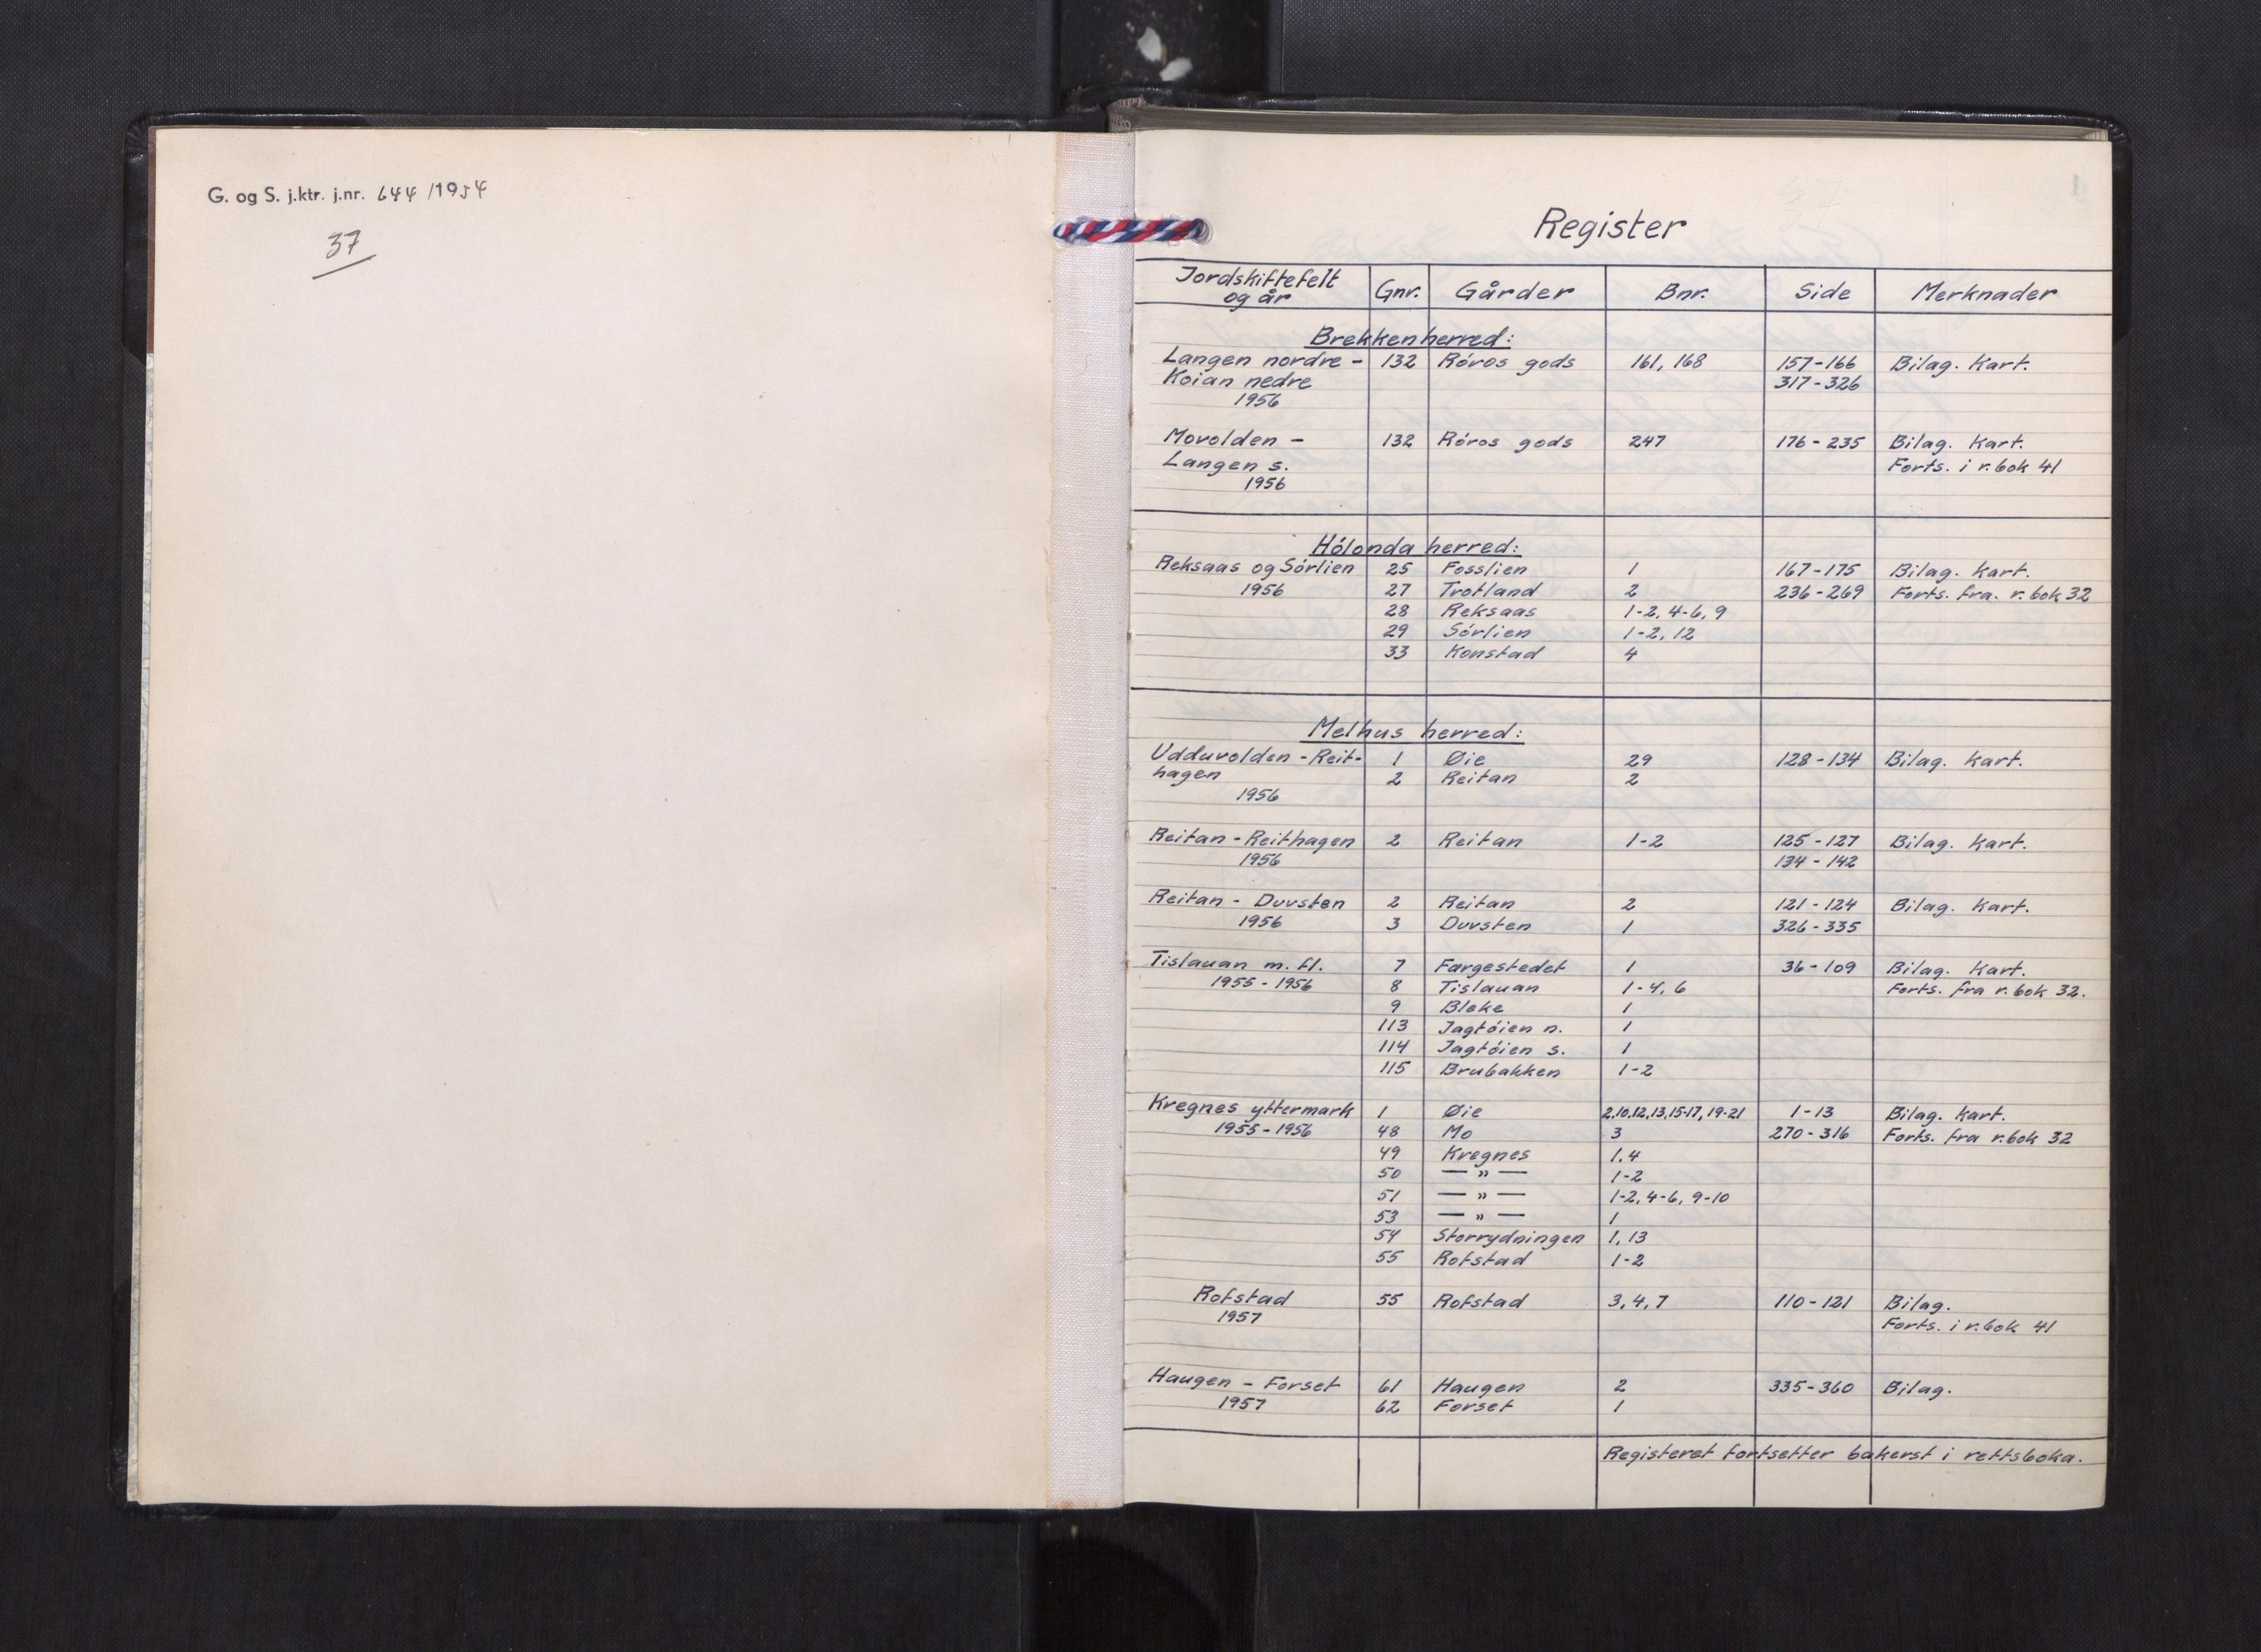 G. og S. j.ktr. j.nr. 644 /1954
37
Register
Jordskiftefelt og år Gnr. Gårder Bnr. Side Merknader
Brekken herred:
Langen nordre - 132 Róros gods 161, 168 157-166 Bilag. Kart.
Koian nedre 317-326
1956
Movolden - 132 Róros gods 247 176-235 Bilag. Kart.
Langen s. Forts. i r.bok 41
1956
Hólonda herred:
Reksaas og Sórlien 25 Fosslien 1 167-175 Bilag. Kart.
1956 27 Trotland 2 236-269 Forts. fra. r.bok 32
28 Reksaas 1-2, 4-6, 9
29 Sórlien 1-2, 12
33 Konstad 4
Melhus herred:
Udduvolden - Reit- 1 Øie 29 128-134 Bilag. Kart.
hagen 2 Reitan 2
1956
Reitan - Reithagen 2 Reitan 1-2 125-127 Bilag. Kart.
1956 134-142
Reitan - Duvsten 2 Reitan 2 121-124 Bilag. Kart.
1956 3 Duvsten 1 326-335
Tislauan m. fl. 7 Fargestedet 1 36-109 Bilag. Kart.
1955-1956 8 Tislauan 1-4, 6 Forts. fra r.bok 32.
9 Bleke 1
113 Jagtóien n. 1
114 Jagtóien s. 1
115 Brubakken 1-2
Kregnes yttermark 1 Øie 2,10,12,13,15-17, 19-21 1-13 Bilag. Kart.
1955-1956 48 Mo 3 270-316 Forts. fra r.bok 32
49 Kregnes 1,4
50 — " — 1-2
51 — " — 1-2, 4-6, 9-10
53 — " — 1
54 Storrydningen 1, 13
55 Rofstad 1-2
Rofstad 55 Rofstad 3, 4, 7 110-121 Bilag.
1957 Forts. i r.bok 41
Haugen - Forset 61 Haugen 2 335-360 Bilag.
1957 62 Forset 1
Registeret fortsetter bakerst i rettsboka.